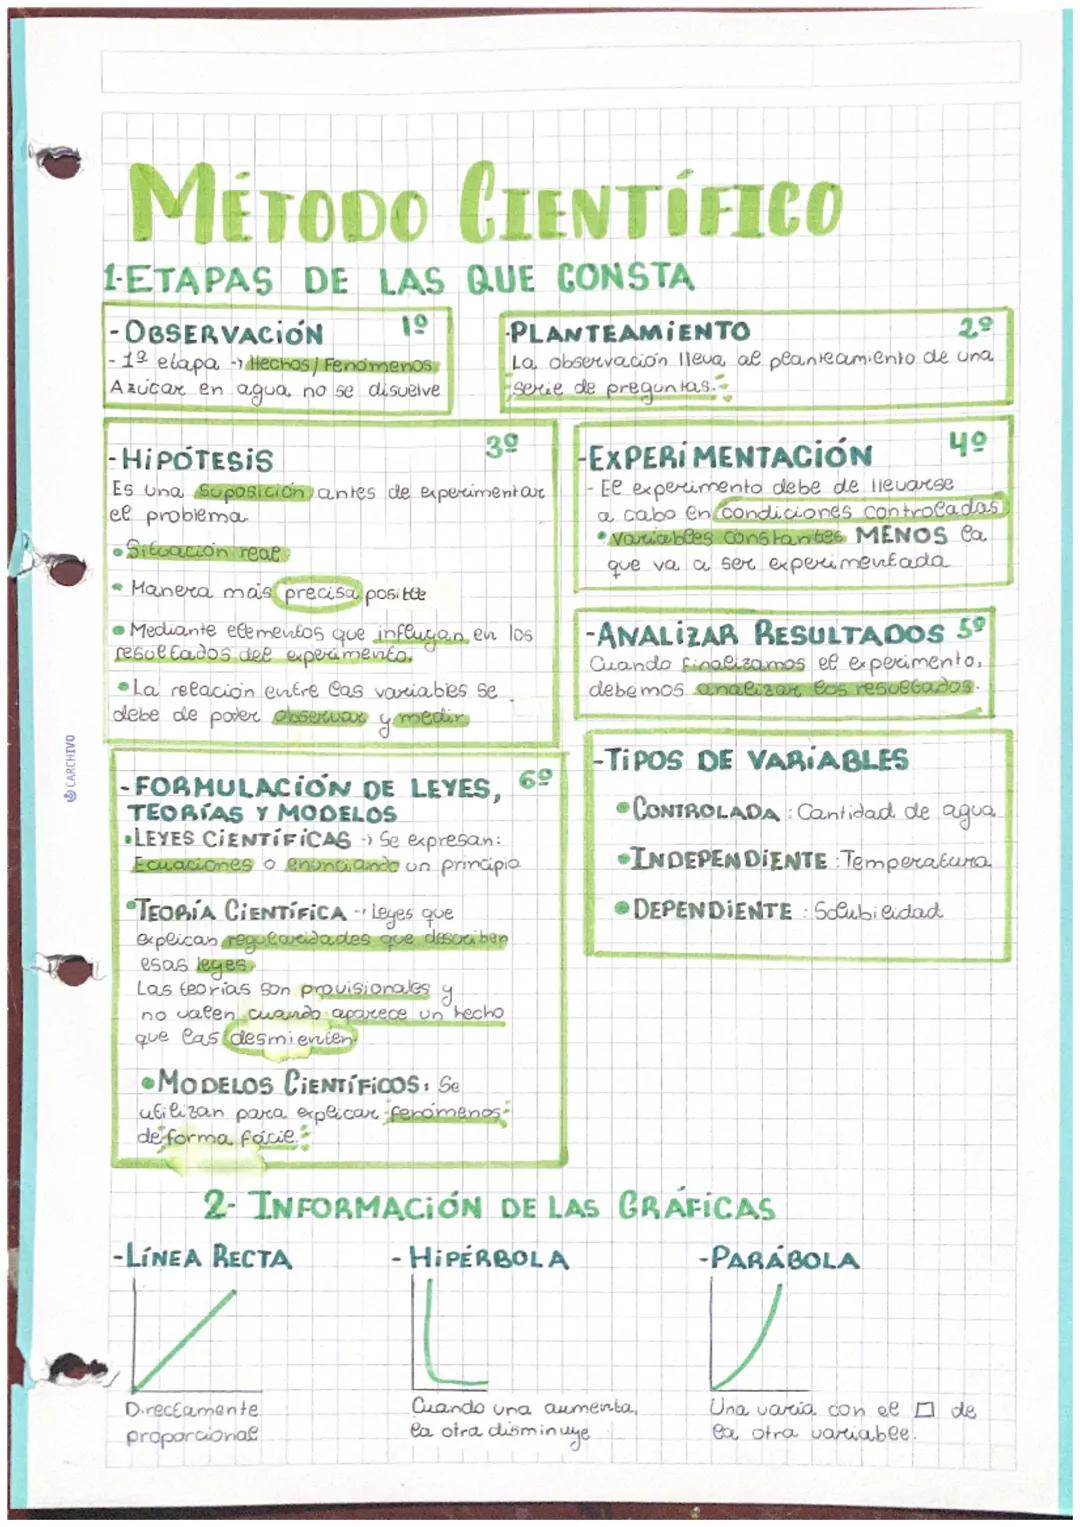 MÉTODO CIENTÍFICO
1-ETAPAS DE LAS QUE CONSTA
-OBSERVACIÓN 1º
- 1ª etapa → Hechos/Fenómenos
Azúcar en agua no se disuelve
-PLANTEAMIENTO 2º
La observación lleva al planteamiento de una
serie de preguntas.
-HIPÓTESIS 3º
Es una suposición antes de experimentar
el problema
• Situación real
• Manera más precisa posible
• Mediante elementos que influyan en los
resultados del experimento.
• La relación entre las variables se
debe de poder observar y medir
-EXPERIMENTACIÓN 4º
- El experimento debe de llevarse
a cabo en condiciones controladas
• variables constantes MENOS la
que va a ser experimentada
-ANALIZAR RESULTADOS 5º
Cuando finalizamos el experimento,
debemos analizar los resultados.
-FORMULACIÓN DE LEYES, 6º
TEORÍAS Y MODELOS
• LEYES CIENTÍFICAS → Se expresan:
Ecuaciones o enunciando un principio
• TEORÍA CIENTÍFICA → Leyes que
explican regularidades que describen
esas leyes
Las teorías son provisionales y
no valen cuando aparece un hecho
que las desmienten
• MODELOS CIENTÍFICOS: Se
utilizan para explicar fenómenos
de forma fácil.
-TIPOS DE VARIABLES
• CONTROLADA: Cantidad de agua
• INDEPENDIENTE: Temperatura
• DEPENDIENTE: Solubilidad
CARCHIVO
2- INFORMACIÓN DE LAS GRÁFICAS
-LÍNEA RECTA
Directamente
proporcional
-HIPÉRBOLA
Cuando una aumenta,
la otra disminuye
-PARÁBOLA
Una varia con el □ de
la otra variable.